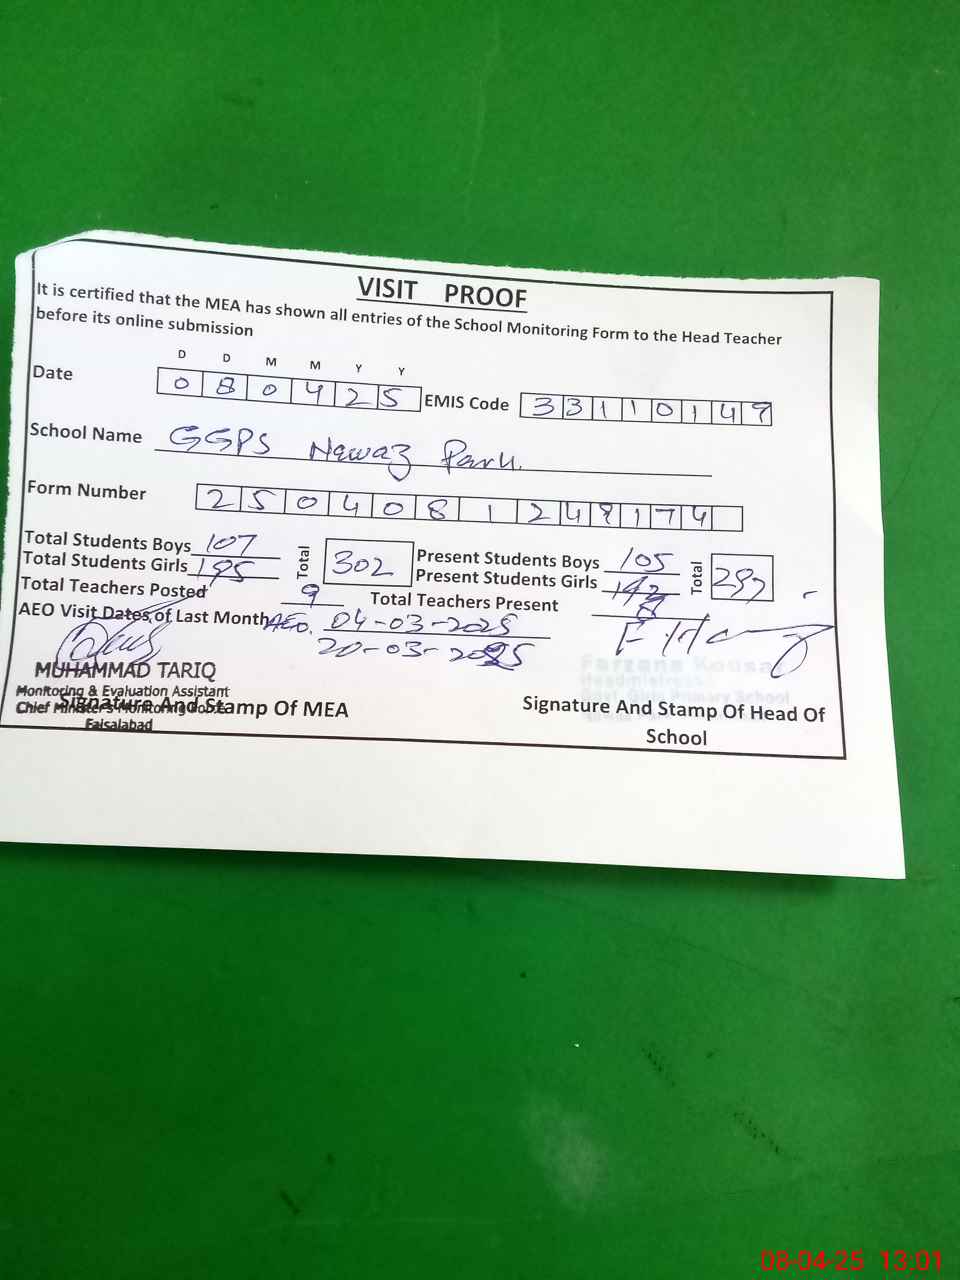 VISIT PROOF
It is certified that the MEA has shown all entries of the School Monitoring Form to the Head Teacher
before its online submission
D D M M Y Y
Date 0 8 0 4 2 5 EMIS Code 3 3 1 1 0 1 4 9
School Name GGPS Nawaz Park.
Form Number 2 5 0 4 0 8 1 2 4 9 1 7 4
Total Students Boys 107 Total 302 Present Students Boys 105 Total 297
Total Students Girls 195 Present Students Girls 192
Total Teachers Posted 9 Total Teachers Present 8
AEO Visit Dates of Last Month AEO. 04-03-2025
20-03-2025
MUHAMMAD TARIQ
Monitoring & Evaluation Assistant
Chief Minister's Monitoring
Faisalabad
Signature And Stamp Of MEA
Farzana Kousar
Headmistress
Govt. Girls Primary School
Signature And Stamp Of Head Of
School
08-04-25 13:01